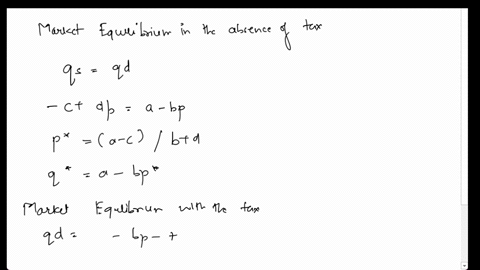 Market Equilibrium in the absence of tax
qs = qd
- c + dp = a - bp
p* = (a-c) / b+d
q* = a - bp*
Market Equilibrium with the tax
qd = - bp - t